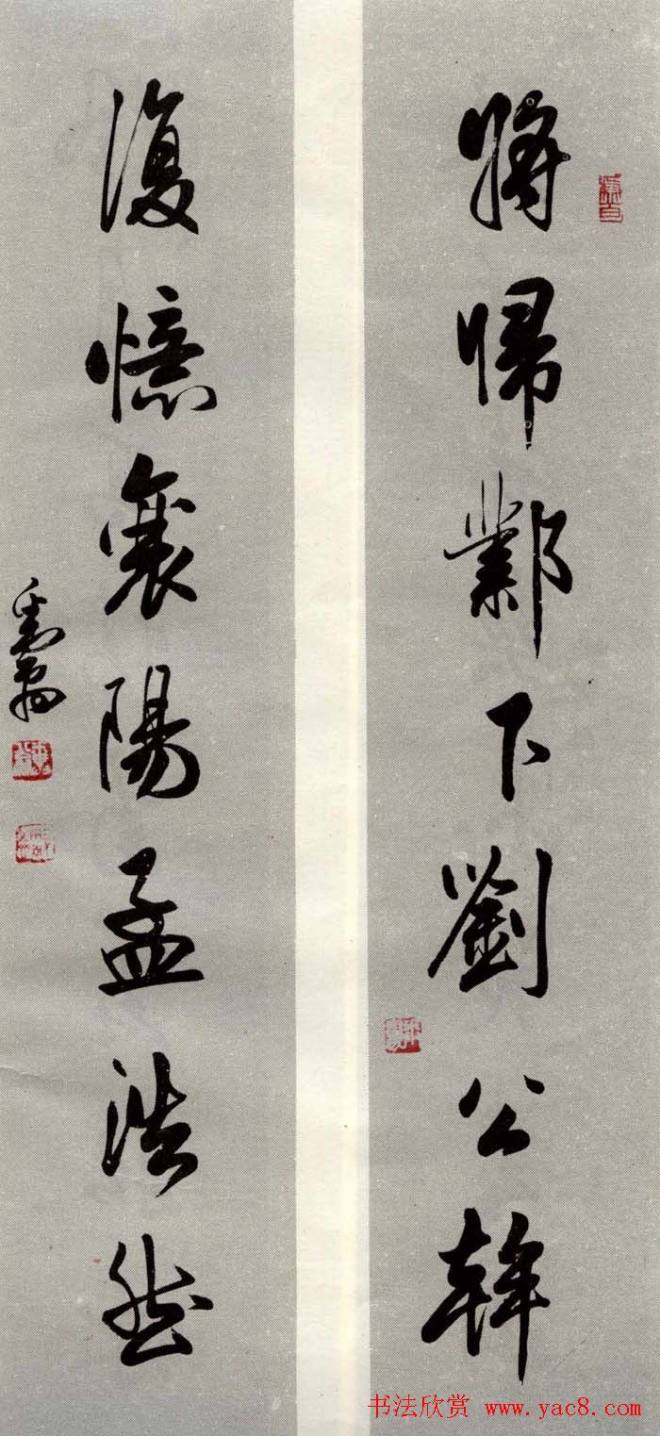 將歸鄴下劉公幹
復憶襄陽孟浩然
书法欣赏 www.yac8.com